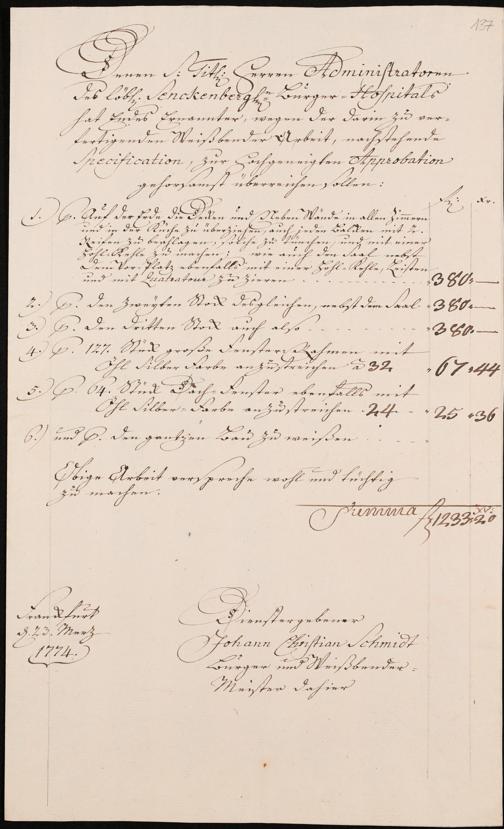 137
Denen S: Titl: Herren Administratoren
des löbl: Senckenbergl: Bürger-Hospitals
hat Endes Ernannter, wegen der darin zu ver-
fertigenden Weißbender Arbeit, nachstehende
Specification, zur Hochgeneigten Approbation
gehorsamst überreichen sollen:
fl: xr.
1.) p. Auf der Erde die Decken und Neben Wände in allen Zimmern
und in der Küche zu überziehen, auch jeden Balcken mit 2.
Reifen zu beschlagen, solche zu machen, und mit einer
Hohl-Kehle zu machen; wie auch den Saal nebst
dem Vor-Platz ebenfalls mit einer Hohl-Kehle, Leisten
und mit Quadratour zu zieren 380:—
2.) p. den Zweyten Stock desgleichen, nebst dem Saal 380:—
3.) p. den dritten Stock auch also 380:—
4.) p. 127. Stück große Fenster-Rahmen mit
Öhl Silber Farbe anzustreichen à 32. 67 44
5.) p. 64. Stück Dach-Fenster ebenfalls mit
Öhl Silber-Farbe anzustreichen 24 25 36
6.) und p. den gantzen Bau zu weißen
Obige Arbeit verspreche wohl und tüchtig
zu machen.
Summa fl 1233: 20 xr:
Franckfurt
d. 23. Mertz
1774.
Dienstergebener
Johann Christian Schmidt
Bürger und Weißbender-
Meister dahier